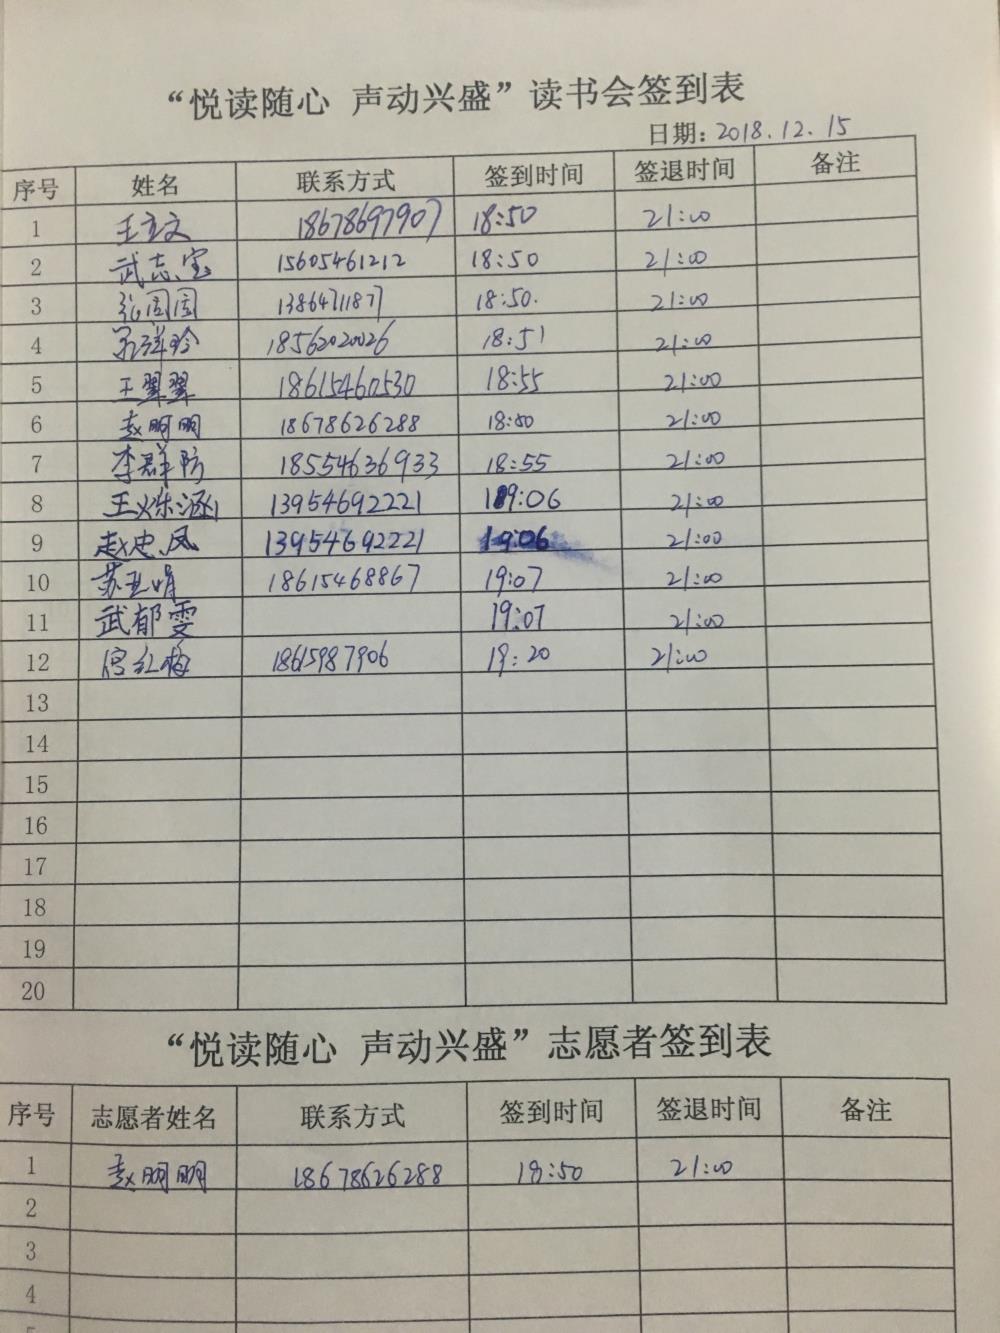 “悦读随心 声动兴盛”读书会签到表
日期：2018.12.15
序号 姓名 联系方式 签到时间 签退时间 备注
1 王立文 18678697907 18:50 21:00
2 武志宝 15605461212 18:50 21:00
3 张圆圆 13864711877 18:50. 21:00
4 18562020026 18:51 21:00
5 王翠翠 18615460530 18:55 21:00
6 赵明明 18678626288 18:50 21:00
7 李群防 18554636933 18:55 21:00
8 王烁涵 13954692221 19:06 21:00
9 赵忠凤 13954692221 19:06 21:00
10 苏亚娟 18615468867 19:07 21:00
11 武郁雯 19:07 21:00
12 红梅 18615987906 19:20 21:00
13
14
15
16
17
18
19
20
“悦读随心 声动兴盛”志愿者签到表
序号 志愿者姓名 联系方式 签到时间 签退时间 备注
1 赵明明 18678626288 18:50 21:00
2
3
4